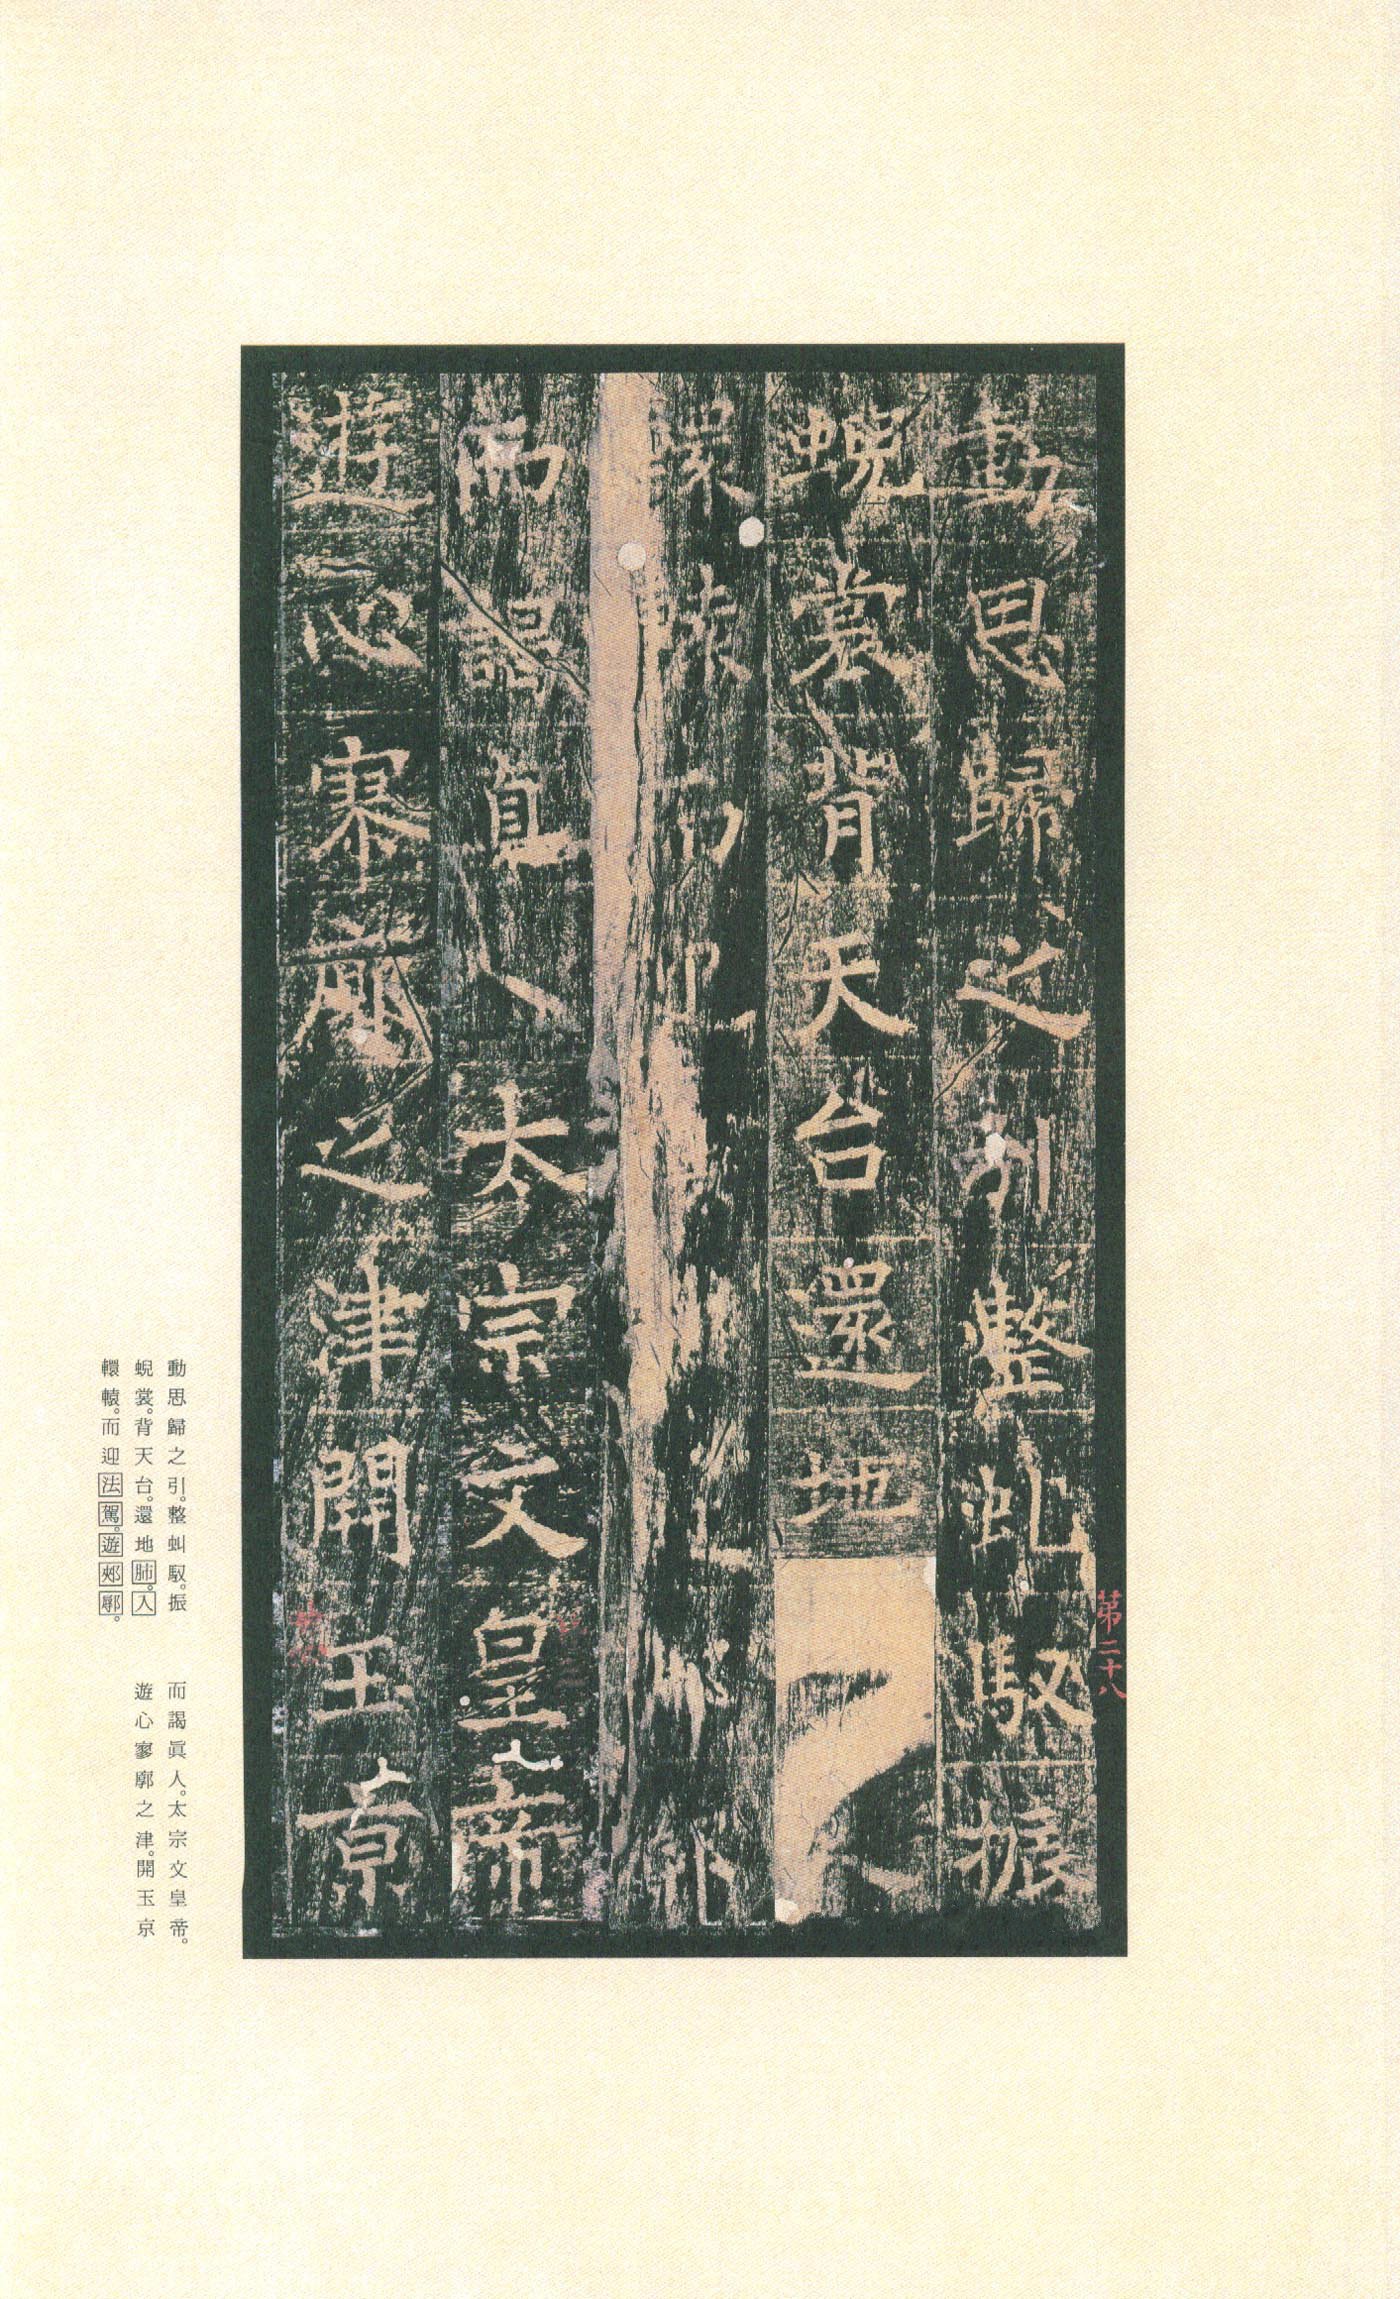 動思歸之引整虬馭振
蜺裳背天台還地
轘轅而迎
而謁真人太宗文皇帝
遊心寥廓之津開玉京
第二十八
動思歸之引。整虬馭。振
蜺裳。背天台。還地肺。入
轘轅。而迎法駕。遊郟廓。
而謁眞人。太宗文皇帝。
遊心寥廓之津。開玉京